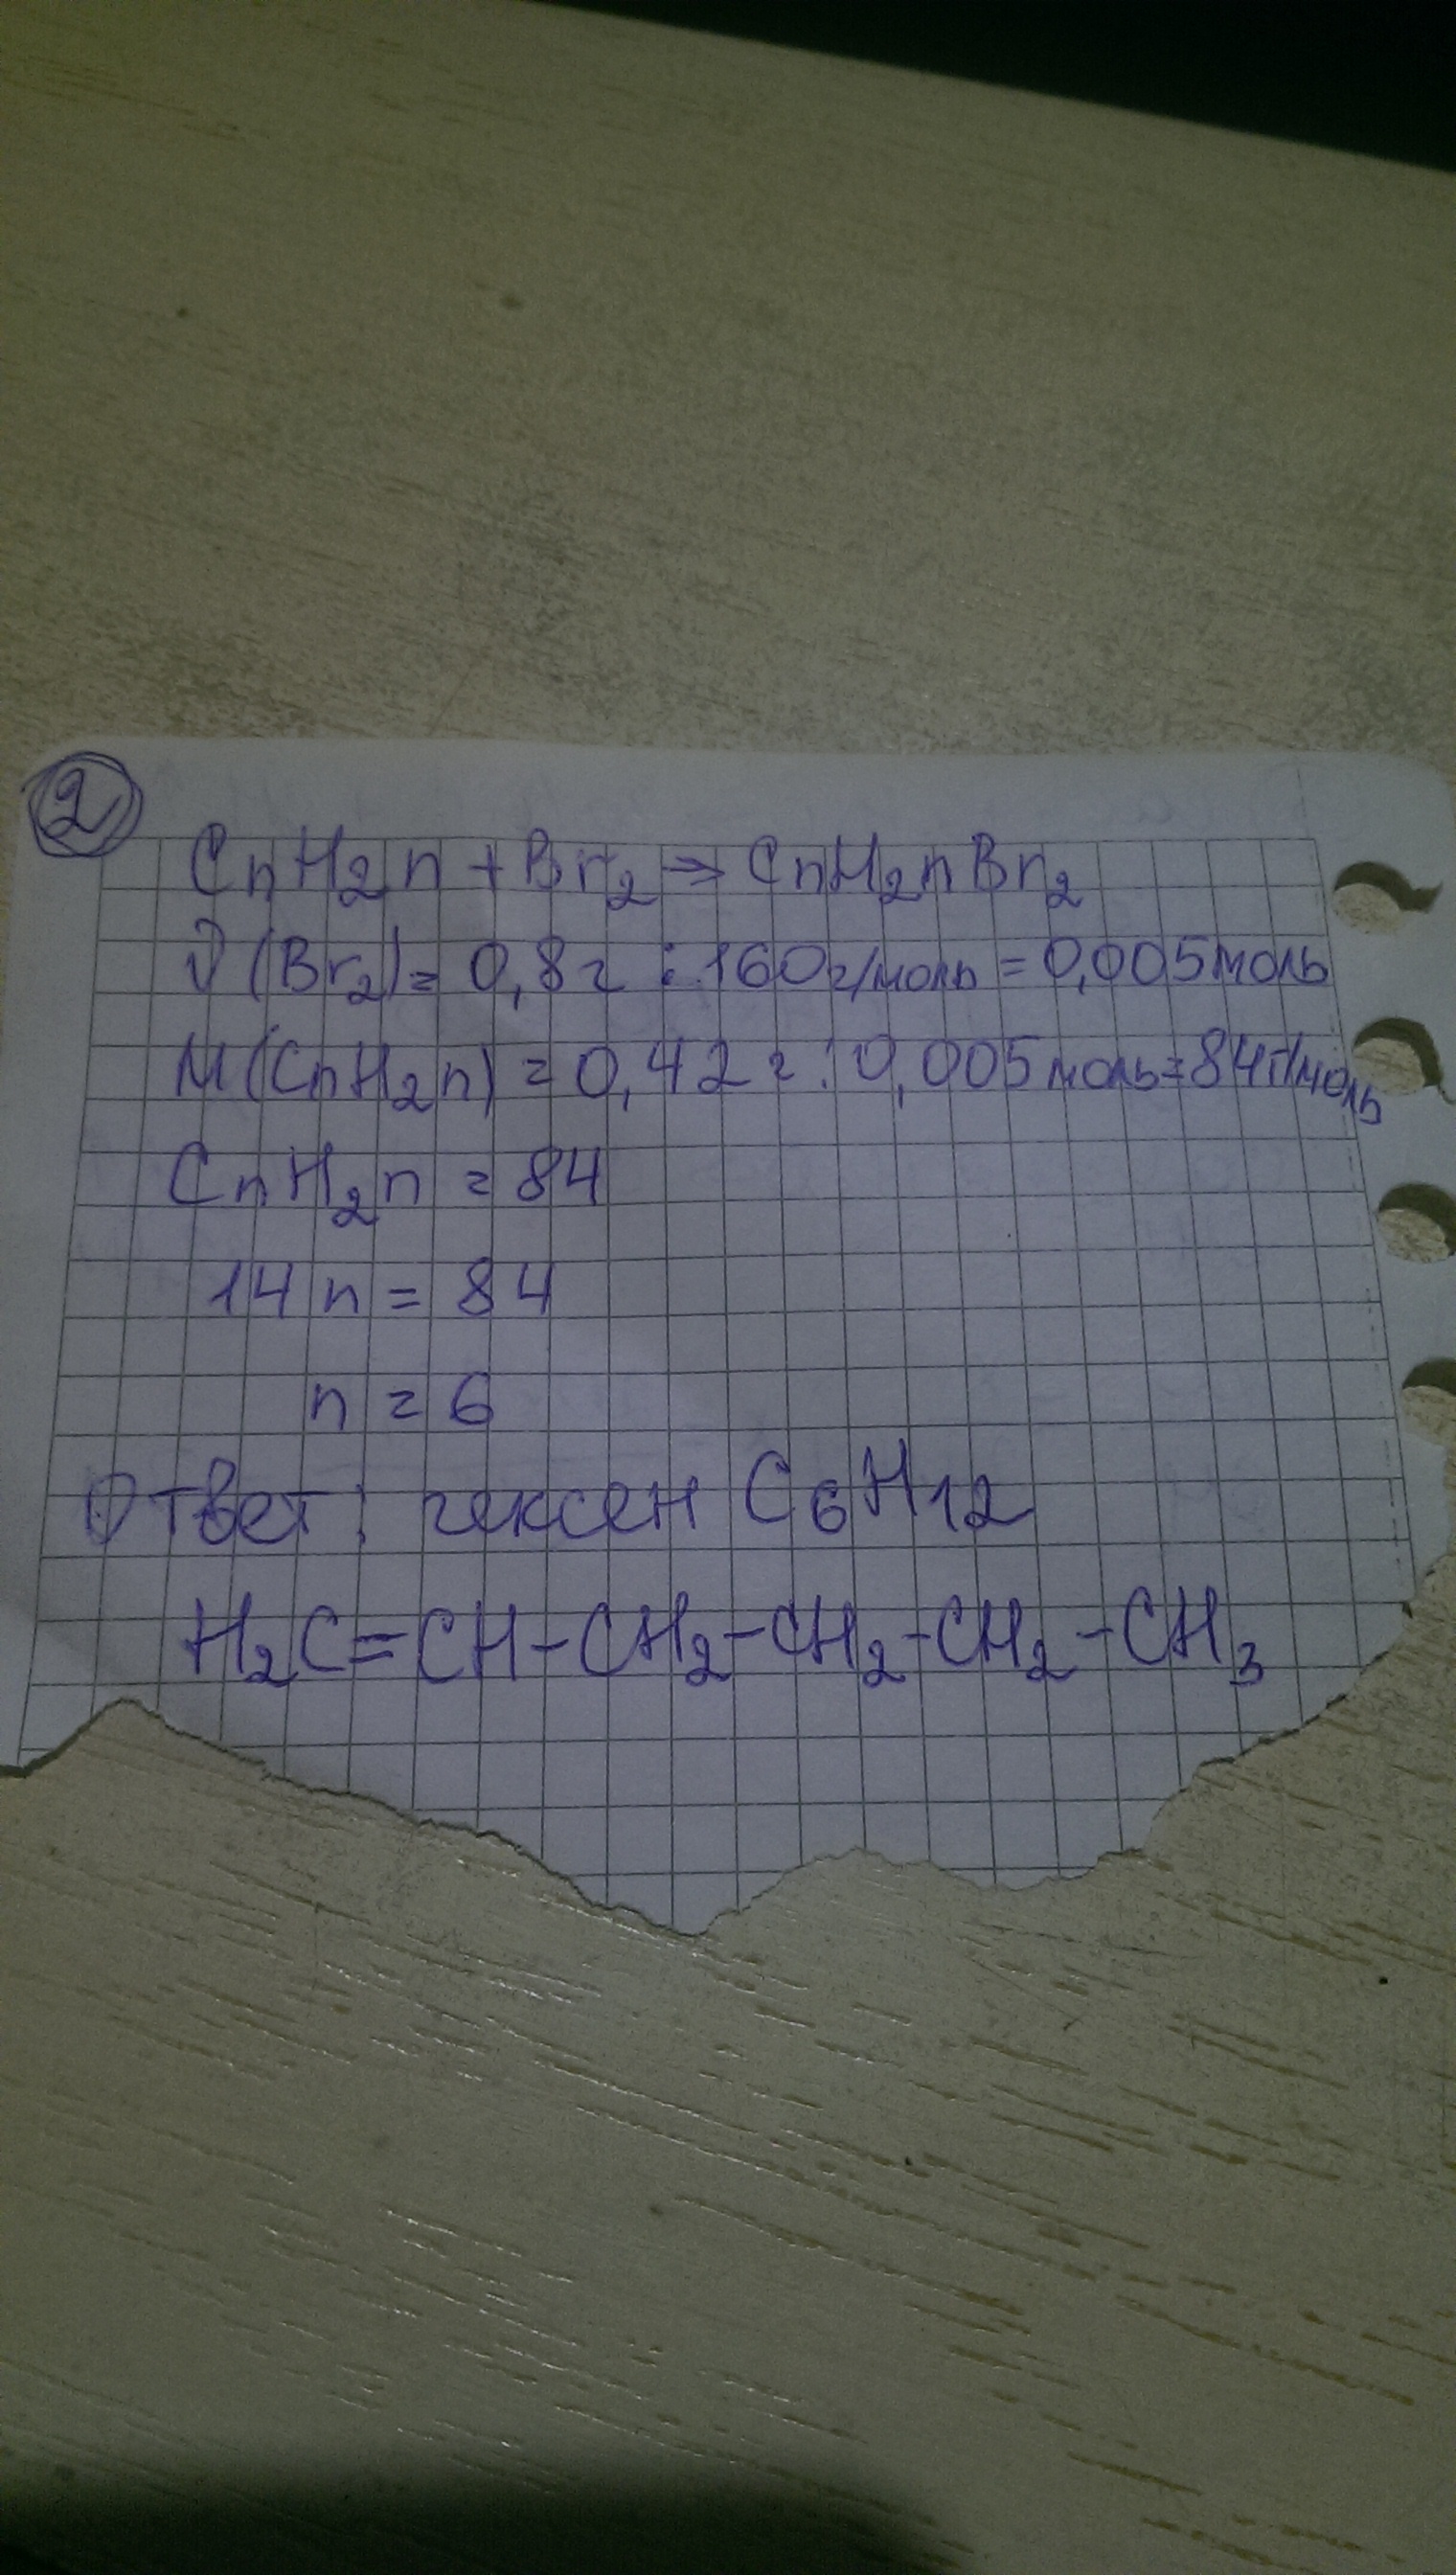 2
CnH2n + Br2 → CnH2nBr2
ν(Br2) = 0,8г : 160г/моль = 0,005моль
M(CnH2n) = 0,42г : 0,005моль = 84г/моль
CnH2n = 84
14n = 84
n = 6
Ответ: гексен C6H12
H2C=CH-CH2-CH2-CH2-CH3